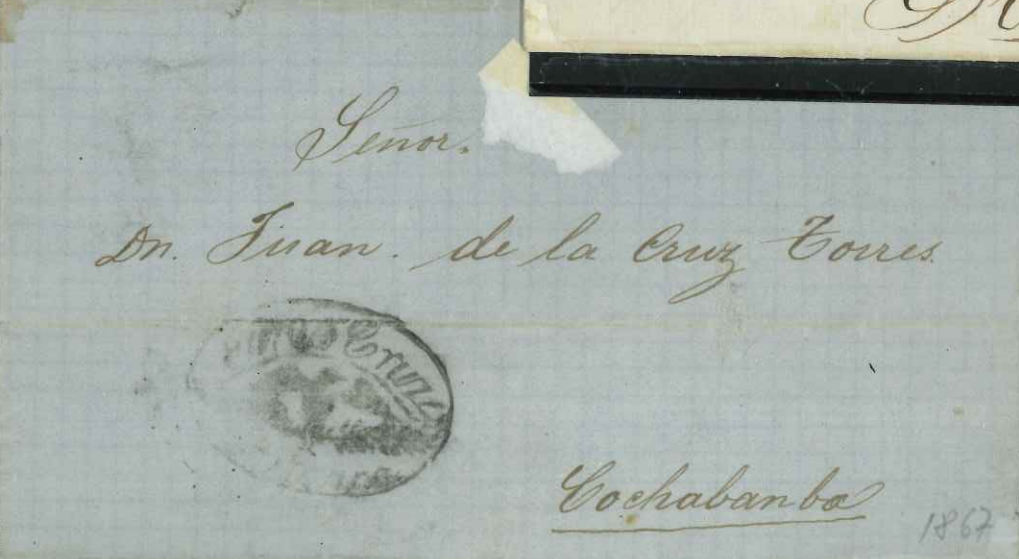 Señor.
Dn. Juan. de la Cruz Torres
Cruz
Cochabanba
1867